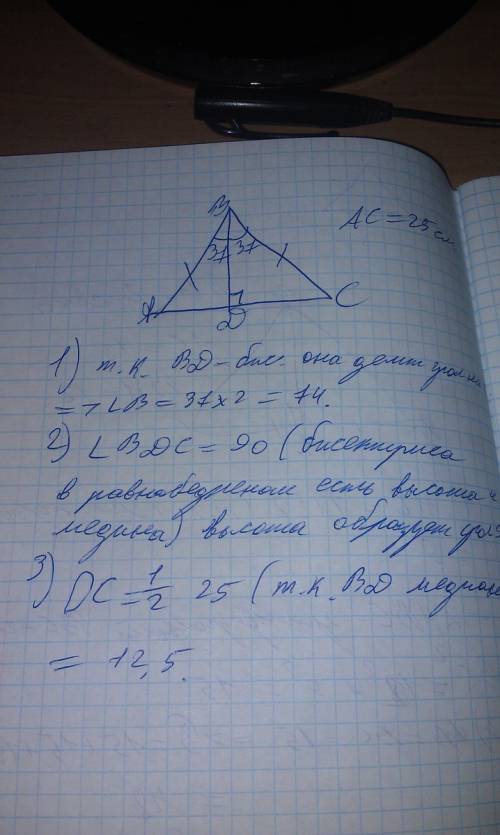 B
AC = 25 см
37 37
A
D
C
1) т.к. BD - бис. она делит угол
=> ∠B = 37 x 2 = 74.
2) ∠BDC = 90 (бисектриса
в равнобедреном есть высота и
медиана) высота образует угол
3) DC = 1/2 25 (т.к. BD медиана
= 12,5.